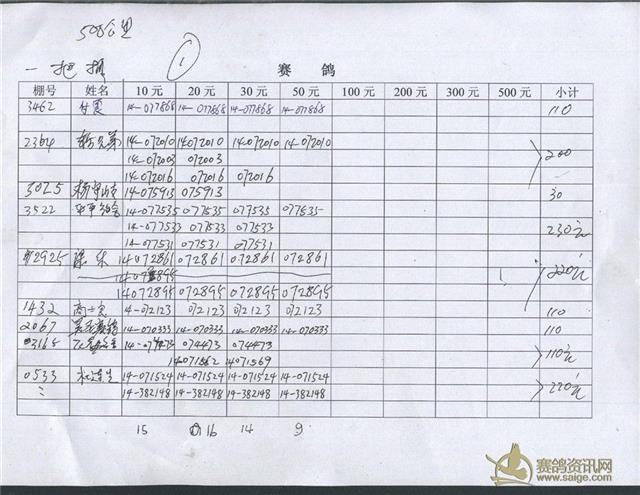 500公里
①
一把抓 赛鸽
棚号 姓名 10元 20元 30元 50元 100元 200元 300元 500元 小计
3462 付震 14-077868 14-077868 14-077868 14-077868 110
2364 14-072010 14072010 14072010 14-072010
14-072003 072003 200
14-072016 072016 072016
3025 14-075913 075913 30
3522 14-077535 077535 077535 077535
14-077533 077533 077533 230元
14-077531 077531 077531
2925 14072861 072861 072861 072861
220元
14072895 072895 072895 072895
1432 14-072123 072123 072123 072123 110
2067 14-070333 14-070333 14-070333 14-070333 110
03165 074473 074473
14071562 14071569 110元
0533 14-071524 14-071524 14-071524 14-071524
14-382148 14-382148 14-382148 14-382148 220元
15 16 14 9
赛鸽资讯网
www.saige.com